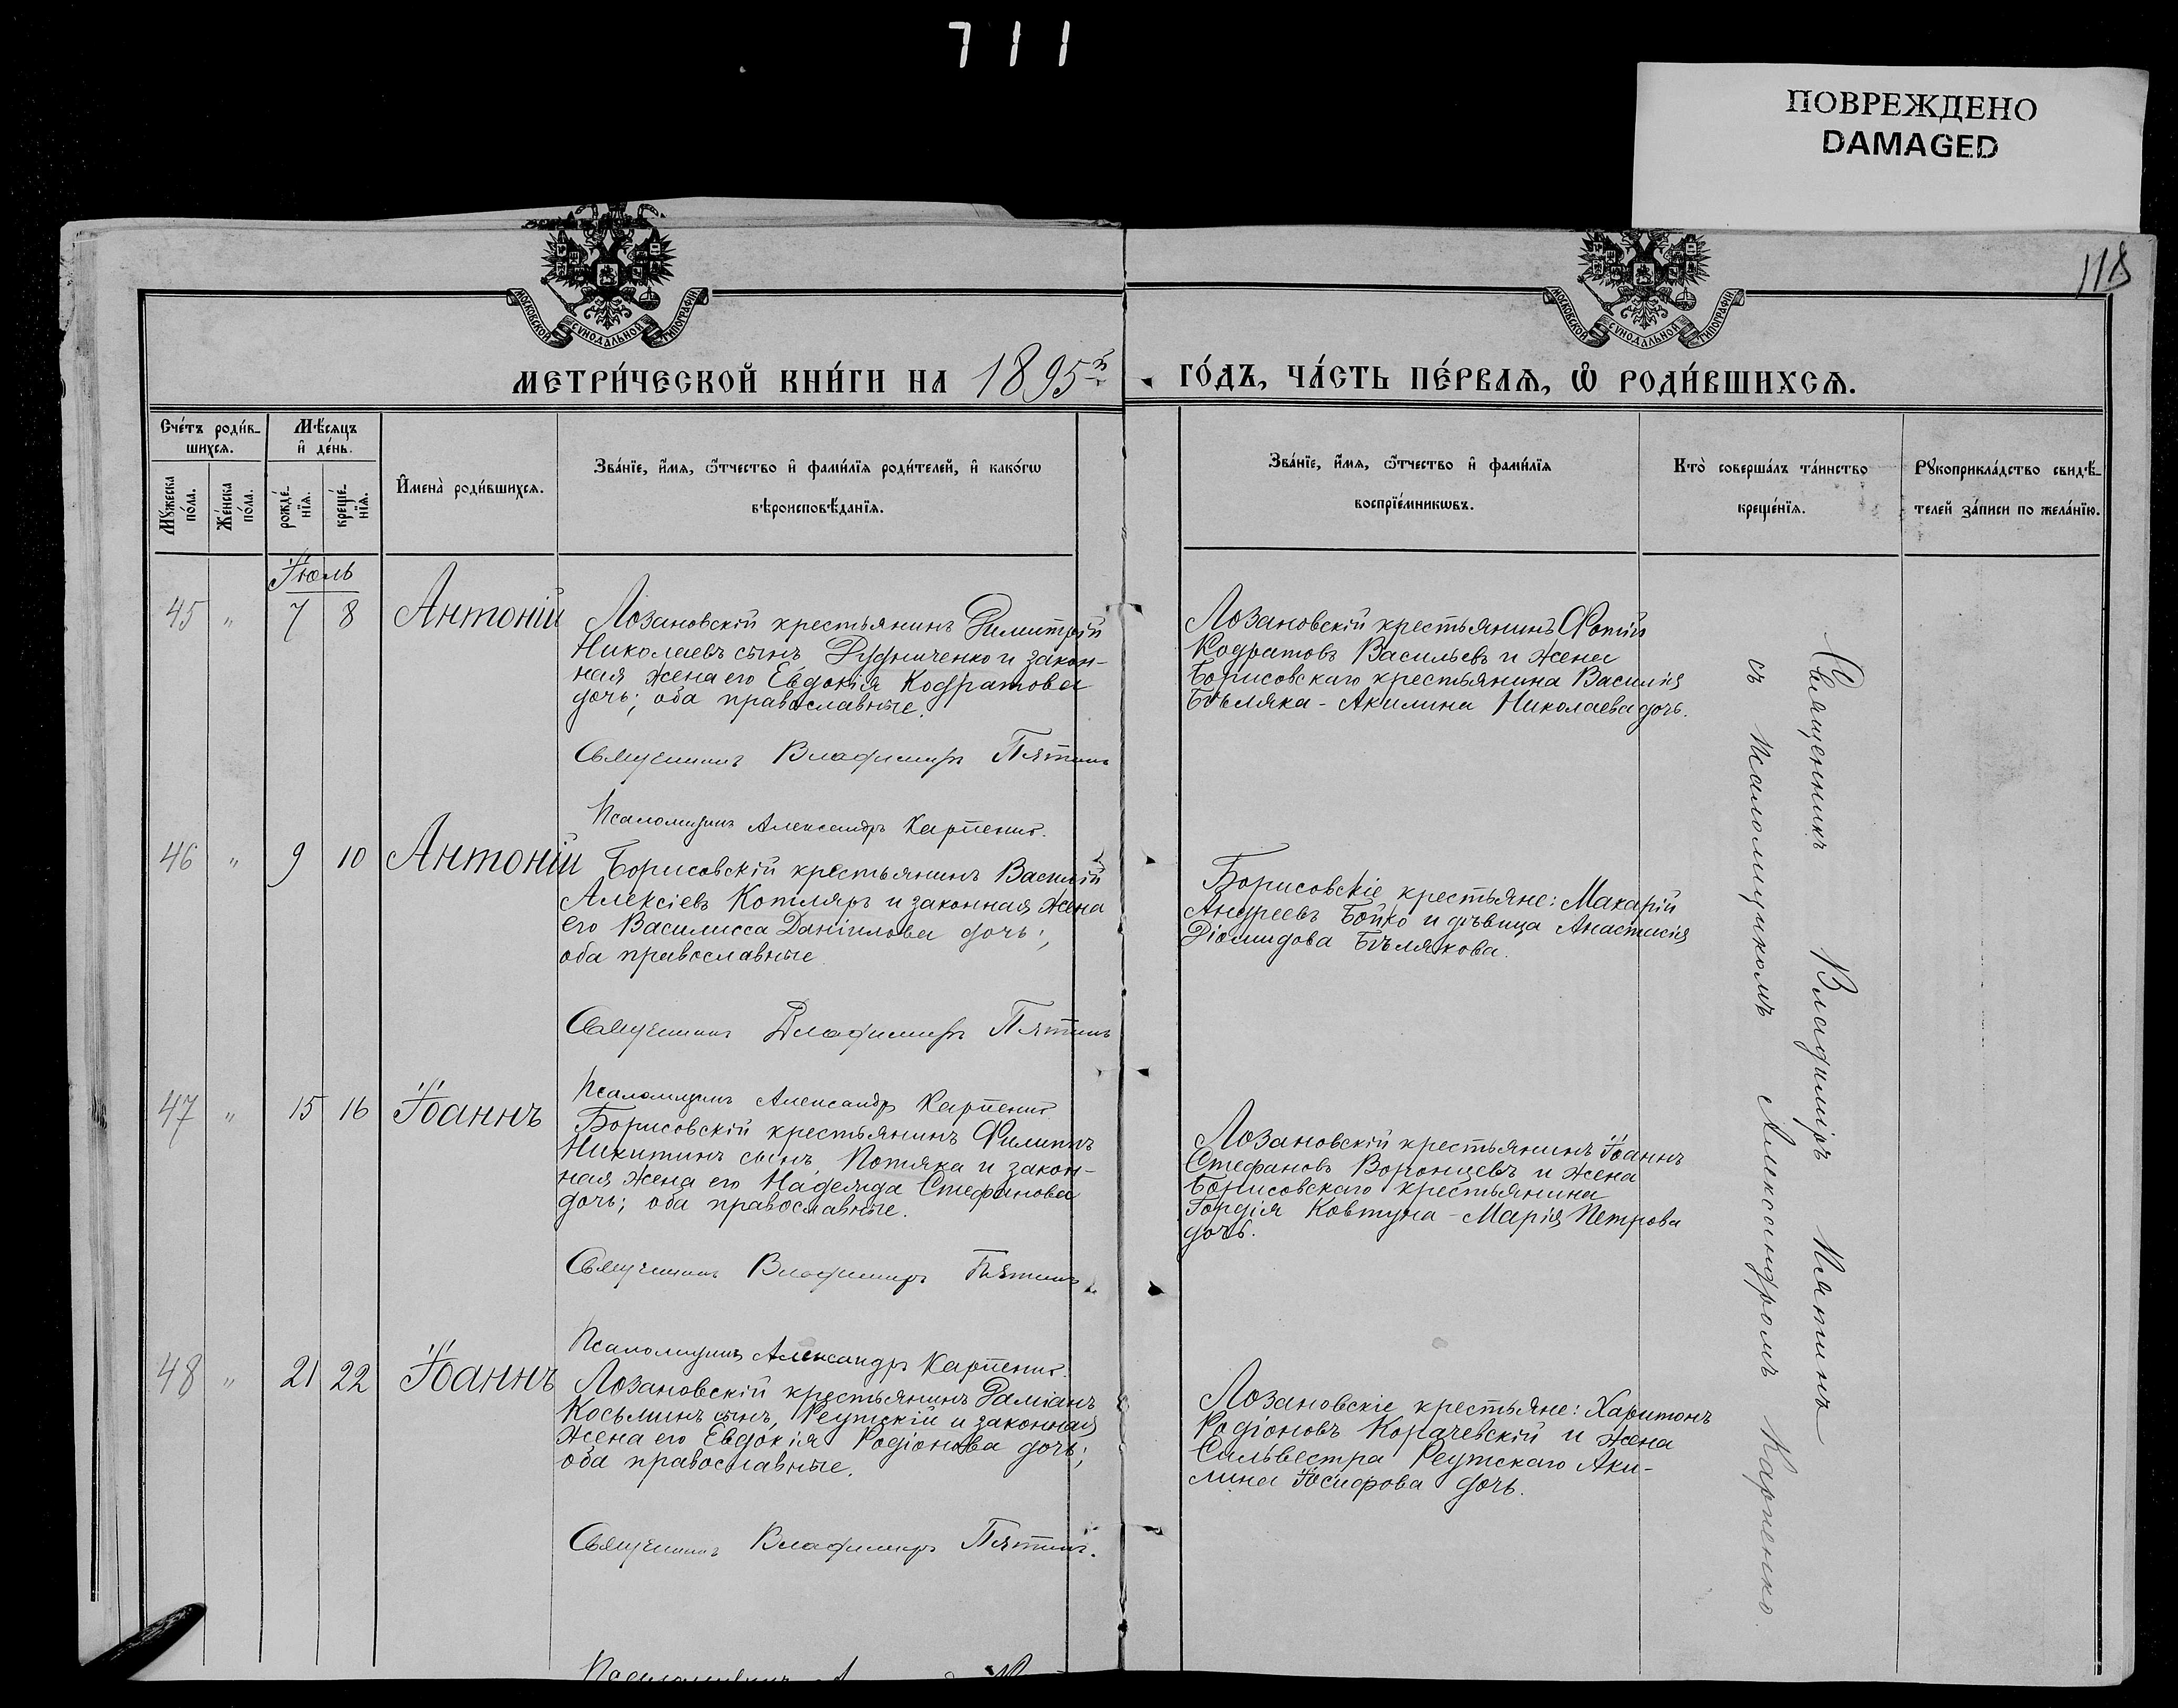 711
ПОВРЕЖДЕНО
DAMAGED
118
МОСКОВСКОЙ СѴНОДАЛЬНОЙ ТИПОГРАФІИ
МОСКОВСКОЙ СѴНОДАЛЬНОЙ ТИПОГРАФІИ
МЕТРИ́ЧЕСКОЙ КНИ́ГИ НА 1895й
ГО́ДЪ, ЧА́СТЬ ПЕ́РВАѦ, Ѡ҆ РОДИ́ВШИХСѦ.
Сче́тъ роди́в-
шихсѧ.
Мѣ́сѧцъ
и҆ де́нь.
Мꙋ́жеска
по́ла.
Же́нска
по́ла.
рожде́-
нїѧ.
креще́-
нїѧ.
И҆мена̀ роди́вшихсѧ.
Зва́нїе, и҆́мѧ, ѻ҆́тчество и҆ фами́лїѧ роди́телей, и҆ како́гѡ
вѣроисповѣ́данїѧ.
Зва́нїе, и҆́мѧ, ѻ҆́тчество и҆ фами́лїѧ
воспрїе́мникѡвъ.
Кто̀ соверша́лъ та́инство
креще́нїѧ.
Рꙋкоприкла́дство свидѣ́-
телей за́писи по жела́нїю.
Іюль
45 " 7 8 Антоній
Лозановскій крестьянинъ Димитрій
Николаевъ сынъ Дудниченко и закон-
ная жена его Евдокія Кодратова
дочь; оба православные.
Священникъ Владимиръ Пятинъ
Псаломщикъ Александръ Карпенко.
Лозановскій крестьянинъ Фотій
Кодратовъ Васильевъ и жена
Борисовскаго крестьянина Василія
Бѣляка - Акилина Николаева дочь.
46 " 9 10 Антоній
Борисовскій крестьянинъ Василій
Алексіевъ Котляръ и законная жена
его Василисса Даніилова дочь;
оба православные
Священникъ Владимиръ Пятинъ
Псаломщикъ Александръ Карпенко
Борисовскіе крестьяне: Макарій
Андреевъ Бойко и дѣвица Анастасія
Діомидова Бѣлякова.
47 " 15 16 Іоаннъ
Борисовскій крестьянинъ Филиппъ
Никитинъ сынъ, Потяка и закон-
ная жена его Надежда Стефанова
дочь; оба православные.
Священникъ Владимиръ Пятинъ
Псаломщикъ Александръ Карпенко.
Лозановскій крестьянинъ Іоаннъ
Стефановъ Воронцевъ и жена
Борисовскаго крестьянина
Гордія Ковтуна - Марія Петрова
дочь.
48 " 21 22 Іоаннъ
Лозановскій крестьянинъ Даміанъ
Косьминъ сынъ, Реутскій и законная
жена его Евдокія Родіонова дочь;
оба православные.
Священникъ Владимиръ Пятинъ.
Лозановскіе крестьяне: Харитонъ
Родіоновъ Корачевскій и жена
Сильвестра Реутскаго Аки-
лина Іосифова дочь.
Священникъ Владиміръ Пятинъ
съ псаломщикомъ Александромъ Карпенко